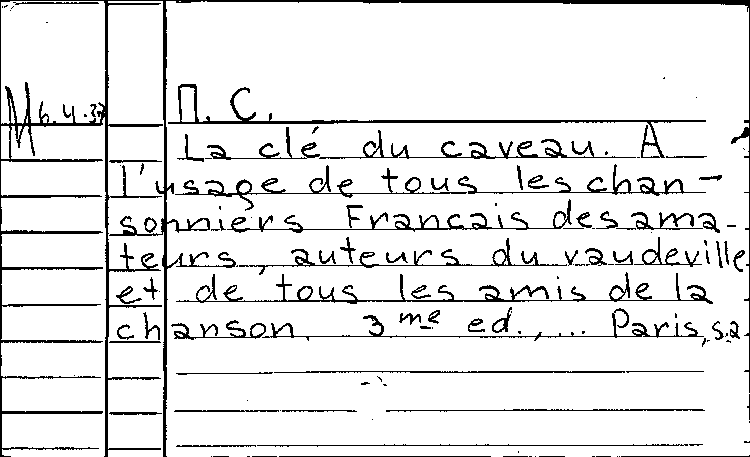 M 6.4.37
П. С.
La clé du caveau. A
l'usage de tous les chan-
sonniers Francais des ama-
teurs, auteurs du vaudeville
et de tous les amis de la
chanson. 3me ed.,... Paris, s.a.